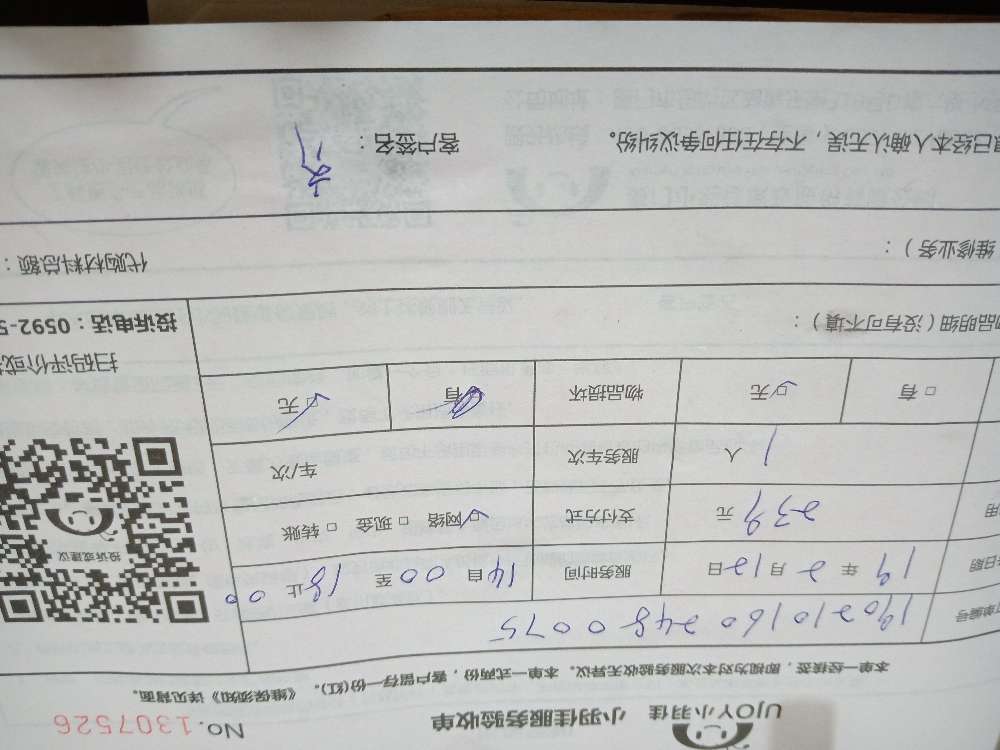 UJOY小羽佳 小羽佳服务验收单 No.1307526
本单一经接签，即视为对本次服务验收无异议。本单一式两份，客户留存一份(红)。《维保须知》详见背面。
单编号 1902101602480075
日期 19 年 2 月 12 日 服务时间 14 自 00 至 18 止 00
用 239 元 支付方式 ☑网络 □现金 □转账
1 人 服务车次 车/次
□有 ☑无 物品损坏 □有 ☑无
投诉或建议
扫码评价或
投诉电话：0592-5
物品明细（没有可不填）：
维修业务）： 代购材料总额：
已经本人确认无误，不存在任何争议纠纷。 客户签名：